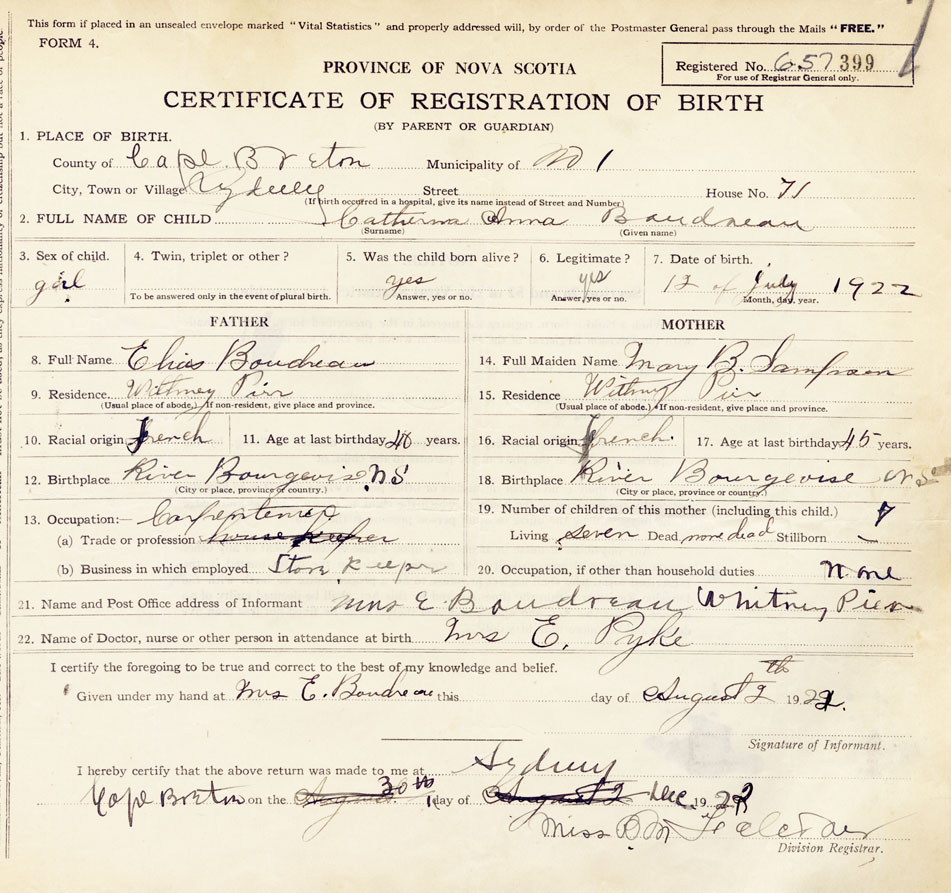 This form if placed in an unsealed envelope marked "Vital Statistics" and properly addressed will, by order of the Postmaster General pass through the Mails "FREE."
FORM 4.
Registered No. 657 399
For use of Registrar General only.
PROVINCE OF NOVA SCOTIA
CERTIFICATE OF REGISTRATION OF BIRTH
(BY PARENT OR GUARDIAN)
1. PLACE OF BIRTH.
County of Cape Breton Municipality of No 1
City, Town or Village Sydney Street House No. 71
(If birth occurred in a hospital, give its name instead of Street and Number)
2. FULL NAME OF CHILD Catherina Anna Boudreau
(Surname) (Given name)
3. Sex of child. 4. Twin, triplet or other? 5. Was the child born alive? 6. Legitimate? 7. Date of birth.
girl yes yes 12 of July 1922
To be answered only in the event of plural birth. Answer, yes or no. Answer, yes or no. Month, day, year.
FATHER MOTHER
8. Full Name Elias Boudreau 14. Full Maiden Name Mary B. Sampson
9. Residence Withney Pier 15. Residence Withny Pier
(Usual place of abode.) If non-resident, give place and province. (Usual place of abode.) If non-resident, give place and province.
10. Racial origin french 11. Age at last birthday years. 16. Racial origin french. 17. Age at last birthday 45 years.
12. Birthplace River Bourgevise N S 18. Birthplace River Bourgeoise N S
(City or place, province or country.) (City or place, province or country.)
13. Occupation:— 19. Number of children of this mother (including this child.) 7
(a) Trade or profession house keeper Living seven Dead none dead Stillborn –
(b) Business in which employed Store Keeper 20. Occupation, if other than household duties none
21. Name and Post Office address of Informant Mrs E Boudreau Whitney Pier
22. Name of Doctor, nurse or other person in attendance at birth Mrs E. Pyke
I certify the foregoing to be true and correct to the best of my knowledge and belief.
Given under my hand at Mrs E. Boudreau this day of August 2th 1922.
Signature of Informant.
I hereby certify that the above return was made to me at Sydney
Cape Breton on the August 30th day of August 2 Dec 1922
Miss
Division Registrar.